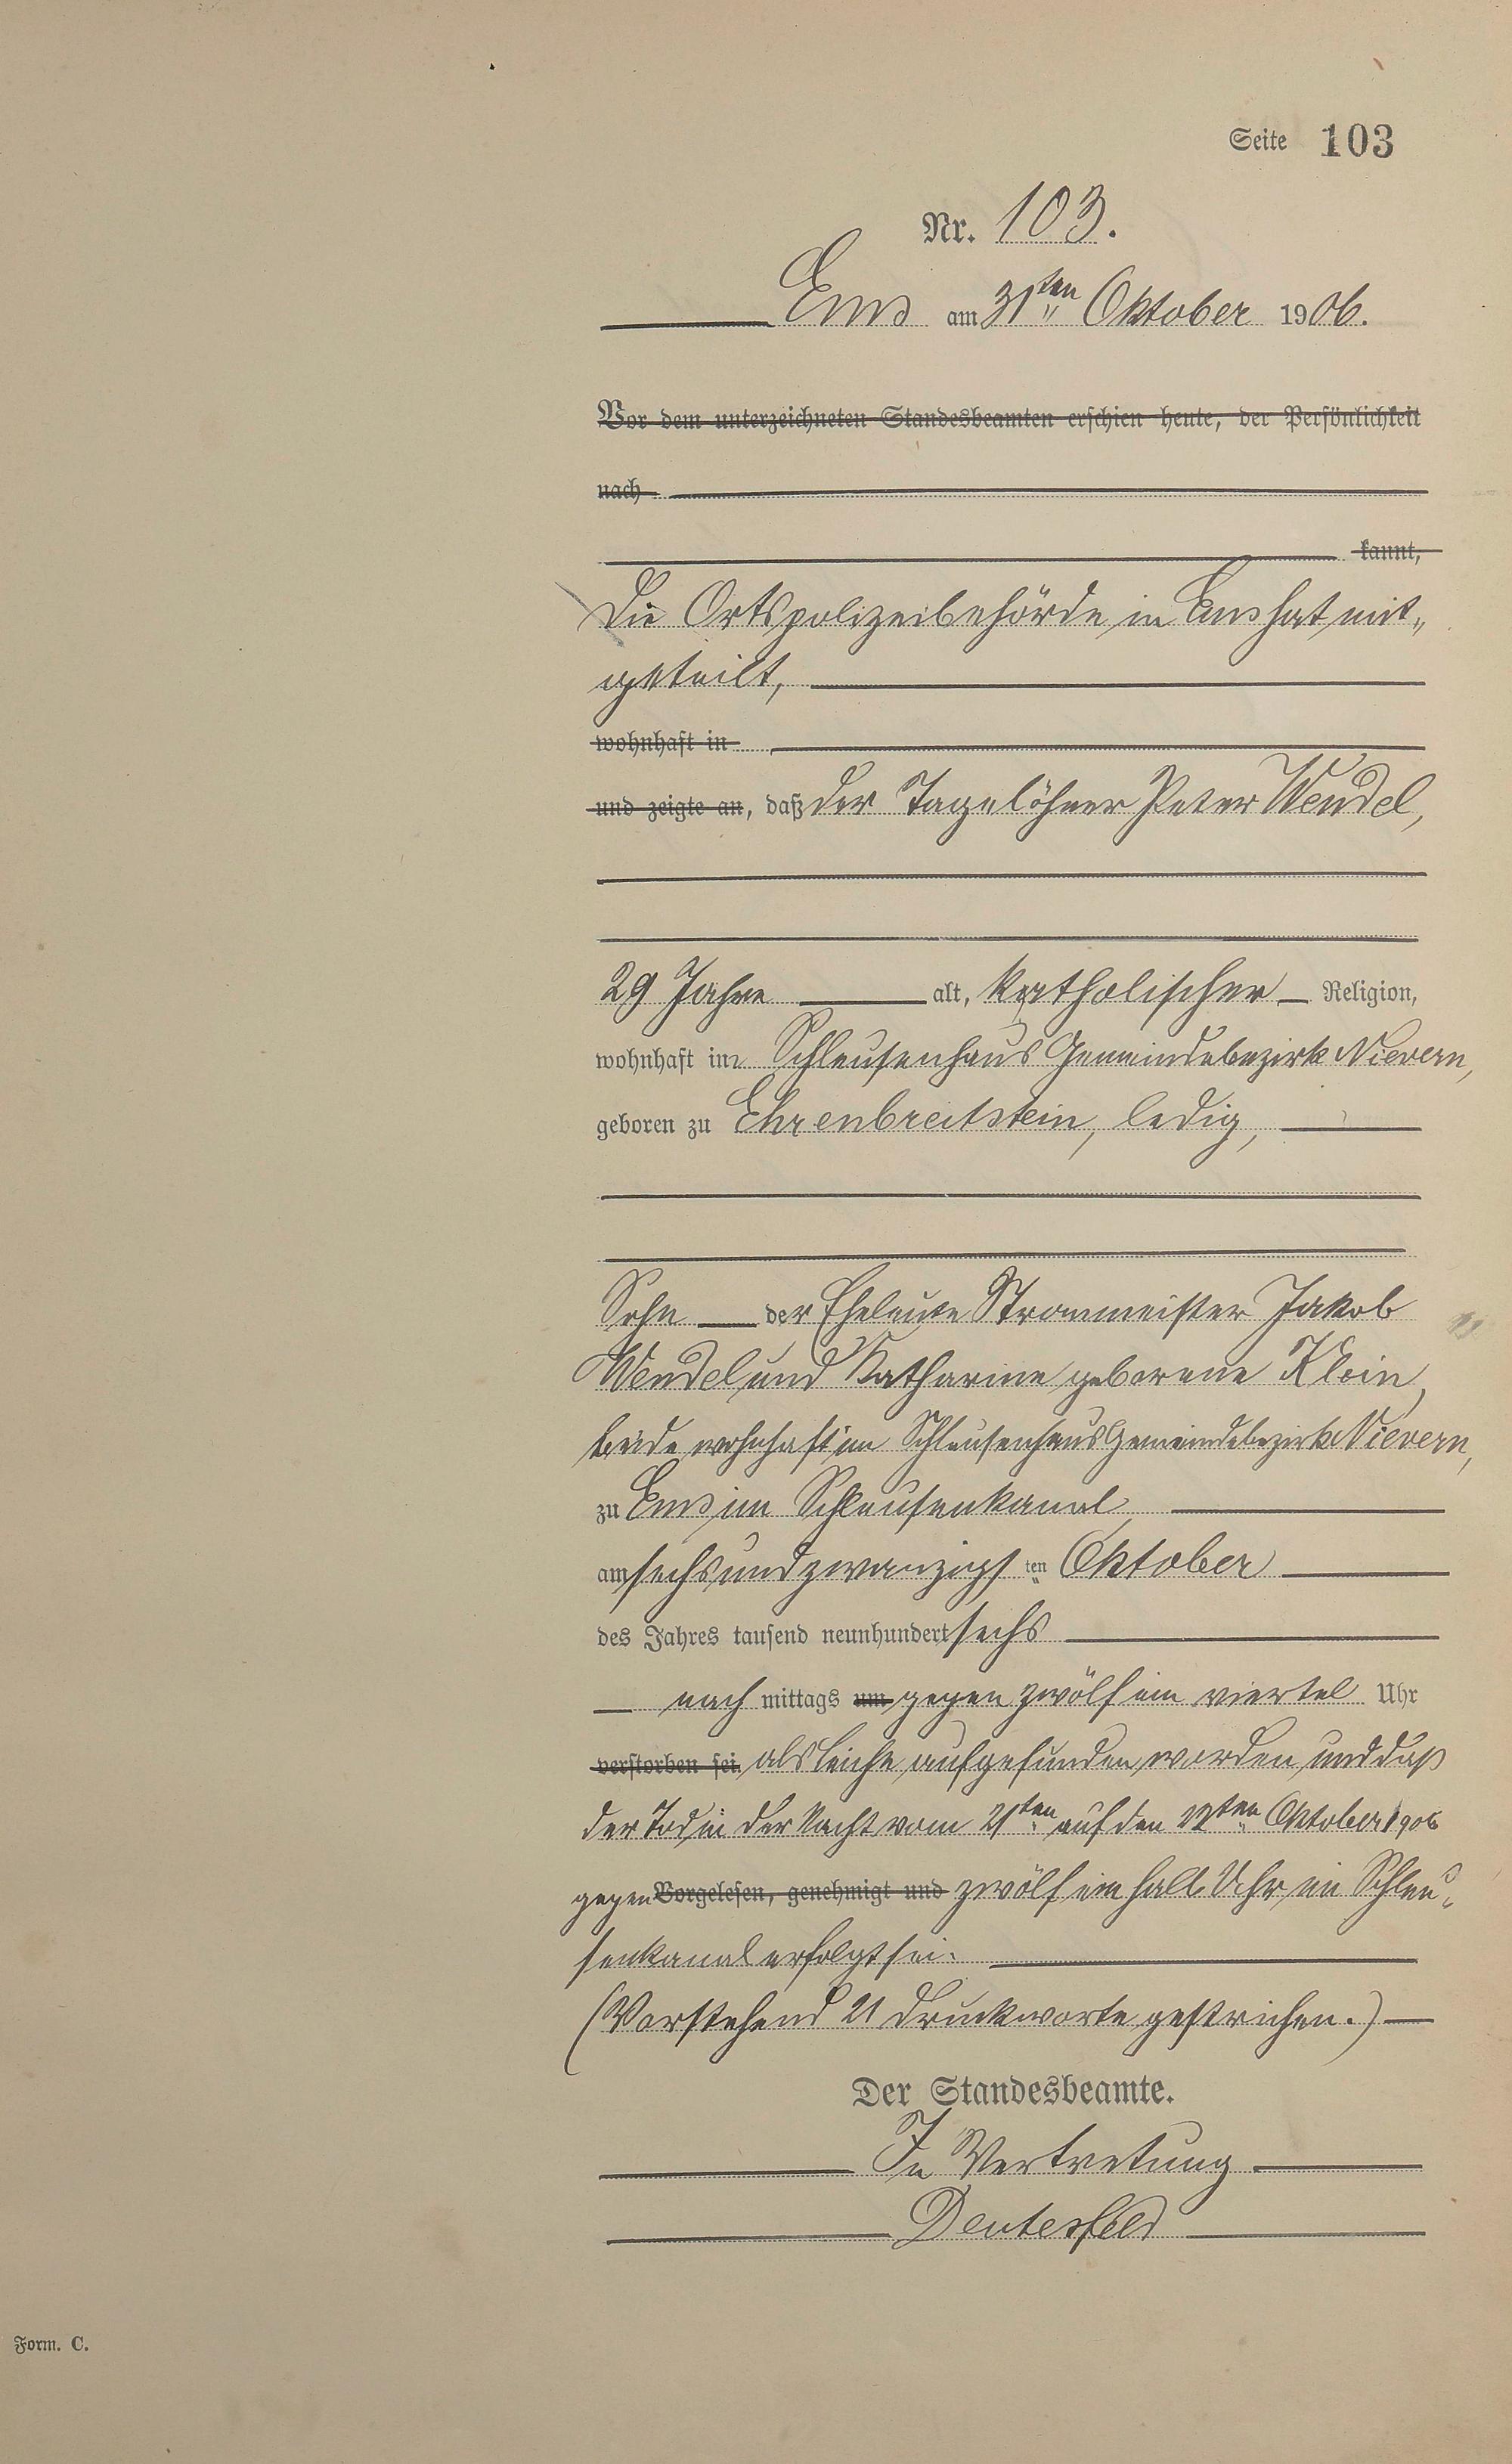 Seite 103
Nr. 103.
Ems am 31ten Oktober 1906.
Vor dem unterzeichneten Standesbeamten erschien heute, der Persönlichkeit
nach
kannt,
Die Ortspolizeibehörde in Ems hat mit„
geteilt,
wohnhaft in
und zeigte an, daß der Tagelöhner Peter Wendel,
29 Jahre alt, katholischer Religion,
wohnhaft im Schleusenhaus Gemeindebezirk Nievern,
geboren zu Ehrenbreitstein, ledig,
Sohn der Eheleute Strommeister Jakob
Wendel und Katharine geborene Klein,
beide wohnhaft im Schleusenhaus Gemeindebezirk Nievern,
zu Ems im Schleusenkanal,
am sechsundzwanzigsten Oktober
des Jahres tausend neunhundert sechs
nach mittags um gegen zwölf ein viertel Uhr
verstorben sei als Leiche aufgefunden worden und daß
der Tod in der Nacht vom 21ten auf den 22ten Oktober 1906
gegen Vorgelesen, genehmigt und zwölf ein halb Uhr im Schleu„
senkanal erfolgt sei.
(Vorstehend 21 Druckworte gestrichen.)
Der Standesbeamte.
In Vertretung
Deutesfeld
Form. C.